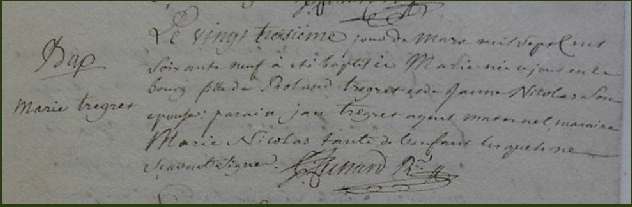 Le vingt troisieme jour de mars mil sept cent
Bap
soixante neuf à eté baptisée Marie née a jour en ce
bourg fille de Roland tregret et de Jeanne Nicolas son
Marie tregret
epouse: parain jan tregret ayeul maternel, maraine
Marie Nicolas tante de l'enfant lesquels ne
scavent signer.